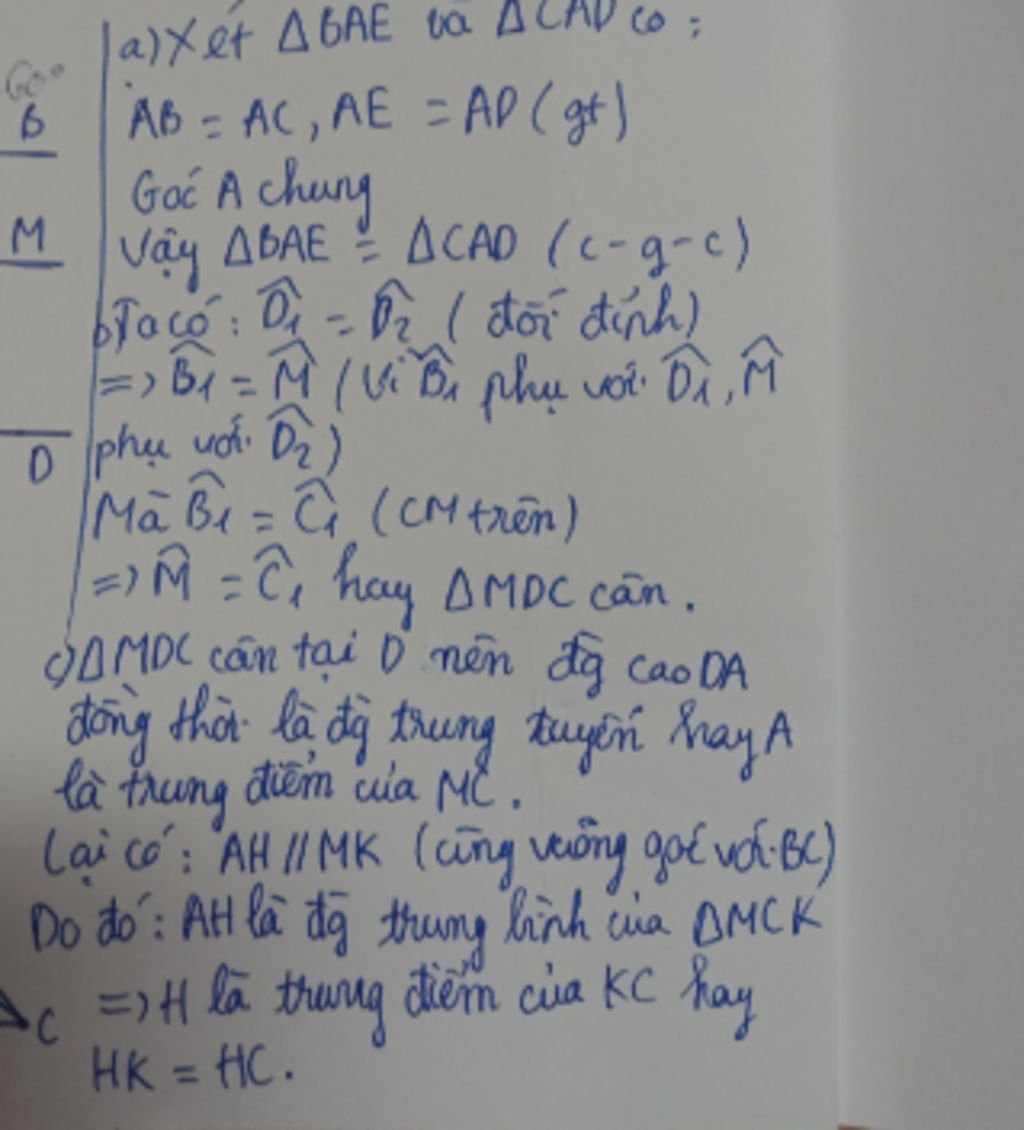 a) Xét ΔBAE và ΔCAD có :
60°
B
AB = AC, AE = AD (gt)
Góc A chung
M
Vậy ΔBAE = ΔCAD (c-g-c)
b) Ta có : D̂1 = D̂2 ( đối đỉnh)
=> B̂1 = M̂ ( Vì B̂1 phụ với D̂1, M̂
phụ với D̂2 )
D
Mà B̂1 = Ĉ1 (CM trên)
=> M̂ = Ĉ1 hay ΔMDC cân .
c) ΔMDC cân tại D nên đg cao DA
đồng thời là đg trung tuyến hay A
là trung điểm của MC .
Lại có : AH // MK (cùng vuông góc với BC)
Do đó : AH là đg trung bình của ΔMCK
C
=> H là trung điểm của KC hay
HK = HC .